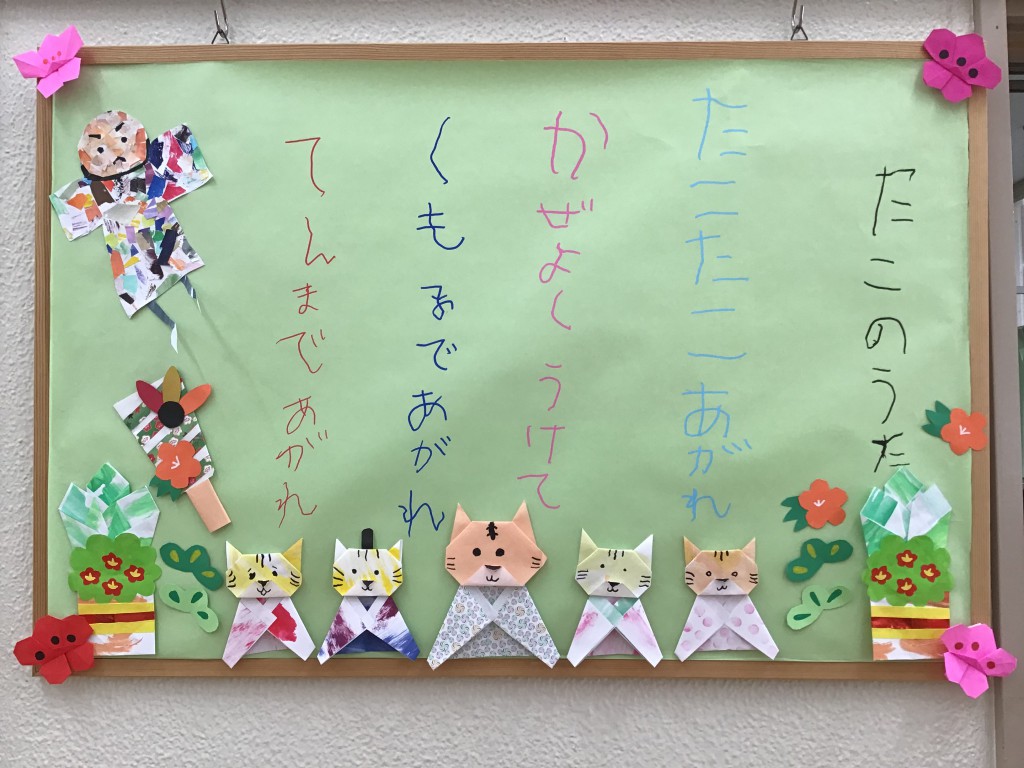 たこのうた
たこたこあがれ
かぜよくうけて
くもまであがれ
てんまであがれ